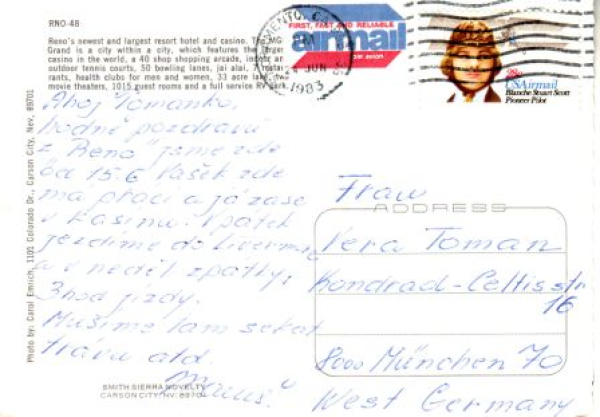 RNO-48
Reno's newest and largest resort hotel and casino. The MG
Grand is a city within a city, which features the larges
casino in the world, a 40 shop shopping arcade, indoor an
outdoor tennis courts, 50 bowling lanes, jai alai, 7 restau
rants, health clubs for men and women, 33 acre lake, two
movie theaters, 1015 guest rooms and a full service RV park.
FIRST, FAST AND RELIABLE
airmail
par avion
JUN
1983
28c
USAirmail
Blanche Stuart Scott
Pioneer Pilot
Photo by: Carol Emrich, 1101 Colorado Dr., Carson City, Nev. 89701
Ahoj Tomanko,
hodně pozdravů
z "Reno" jsme zde
od 15.6 Vašek zde
má práci a já zase
v Kasinu. V pátek
jezdíme do Livermore
a v neděl zpátky,
3 hod jízdy.
Musíme tam sekat
trávu atd.
SMITH SIERRA NOVELTY
CARSON CITY, NV. 89701
Frau
ADDRESS
Vera Toman
Kondrad-Celtisstr
16
8000 München 70
West Germany